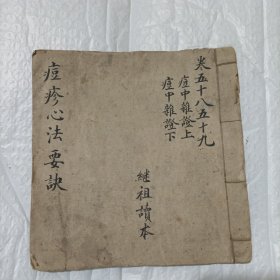 卷五十八五十九
痘中雜證上
痘中雜證下
继祖讀本
痘疹心法要訣